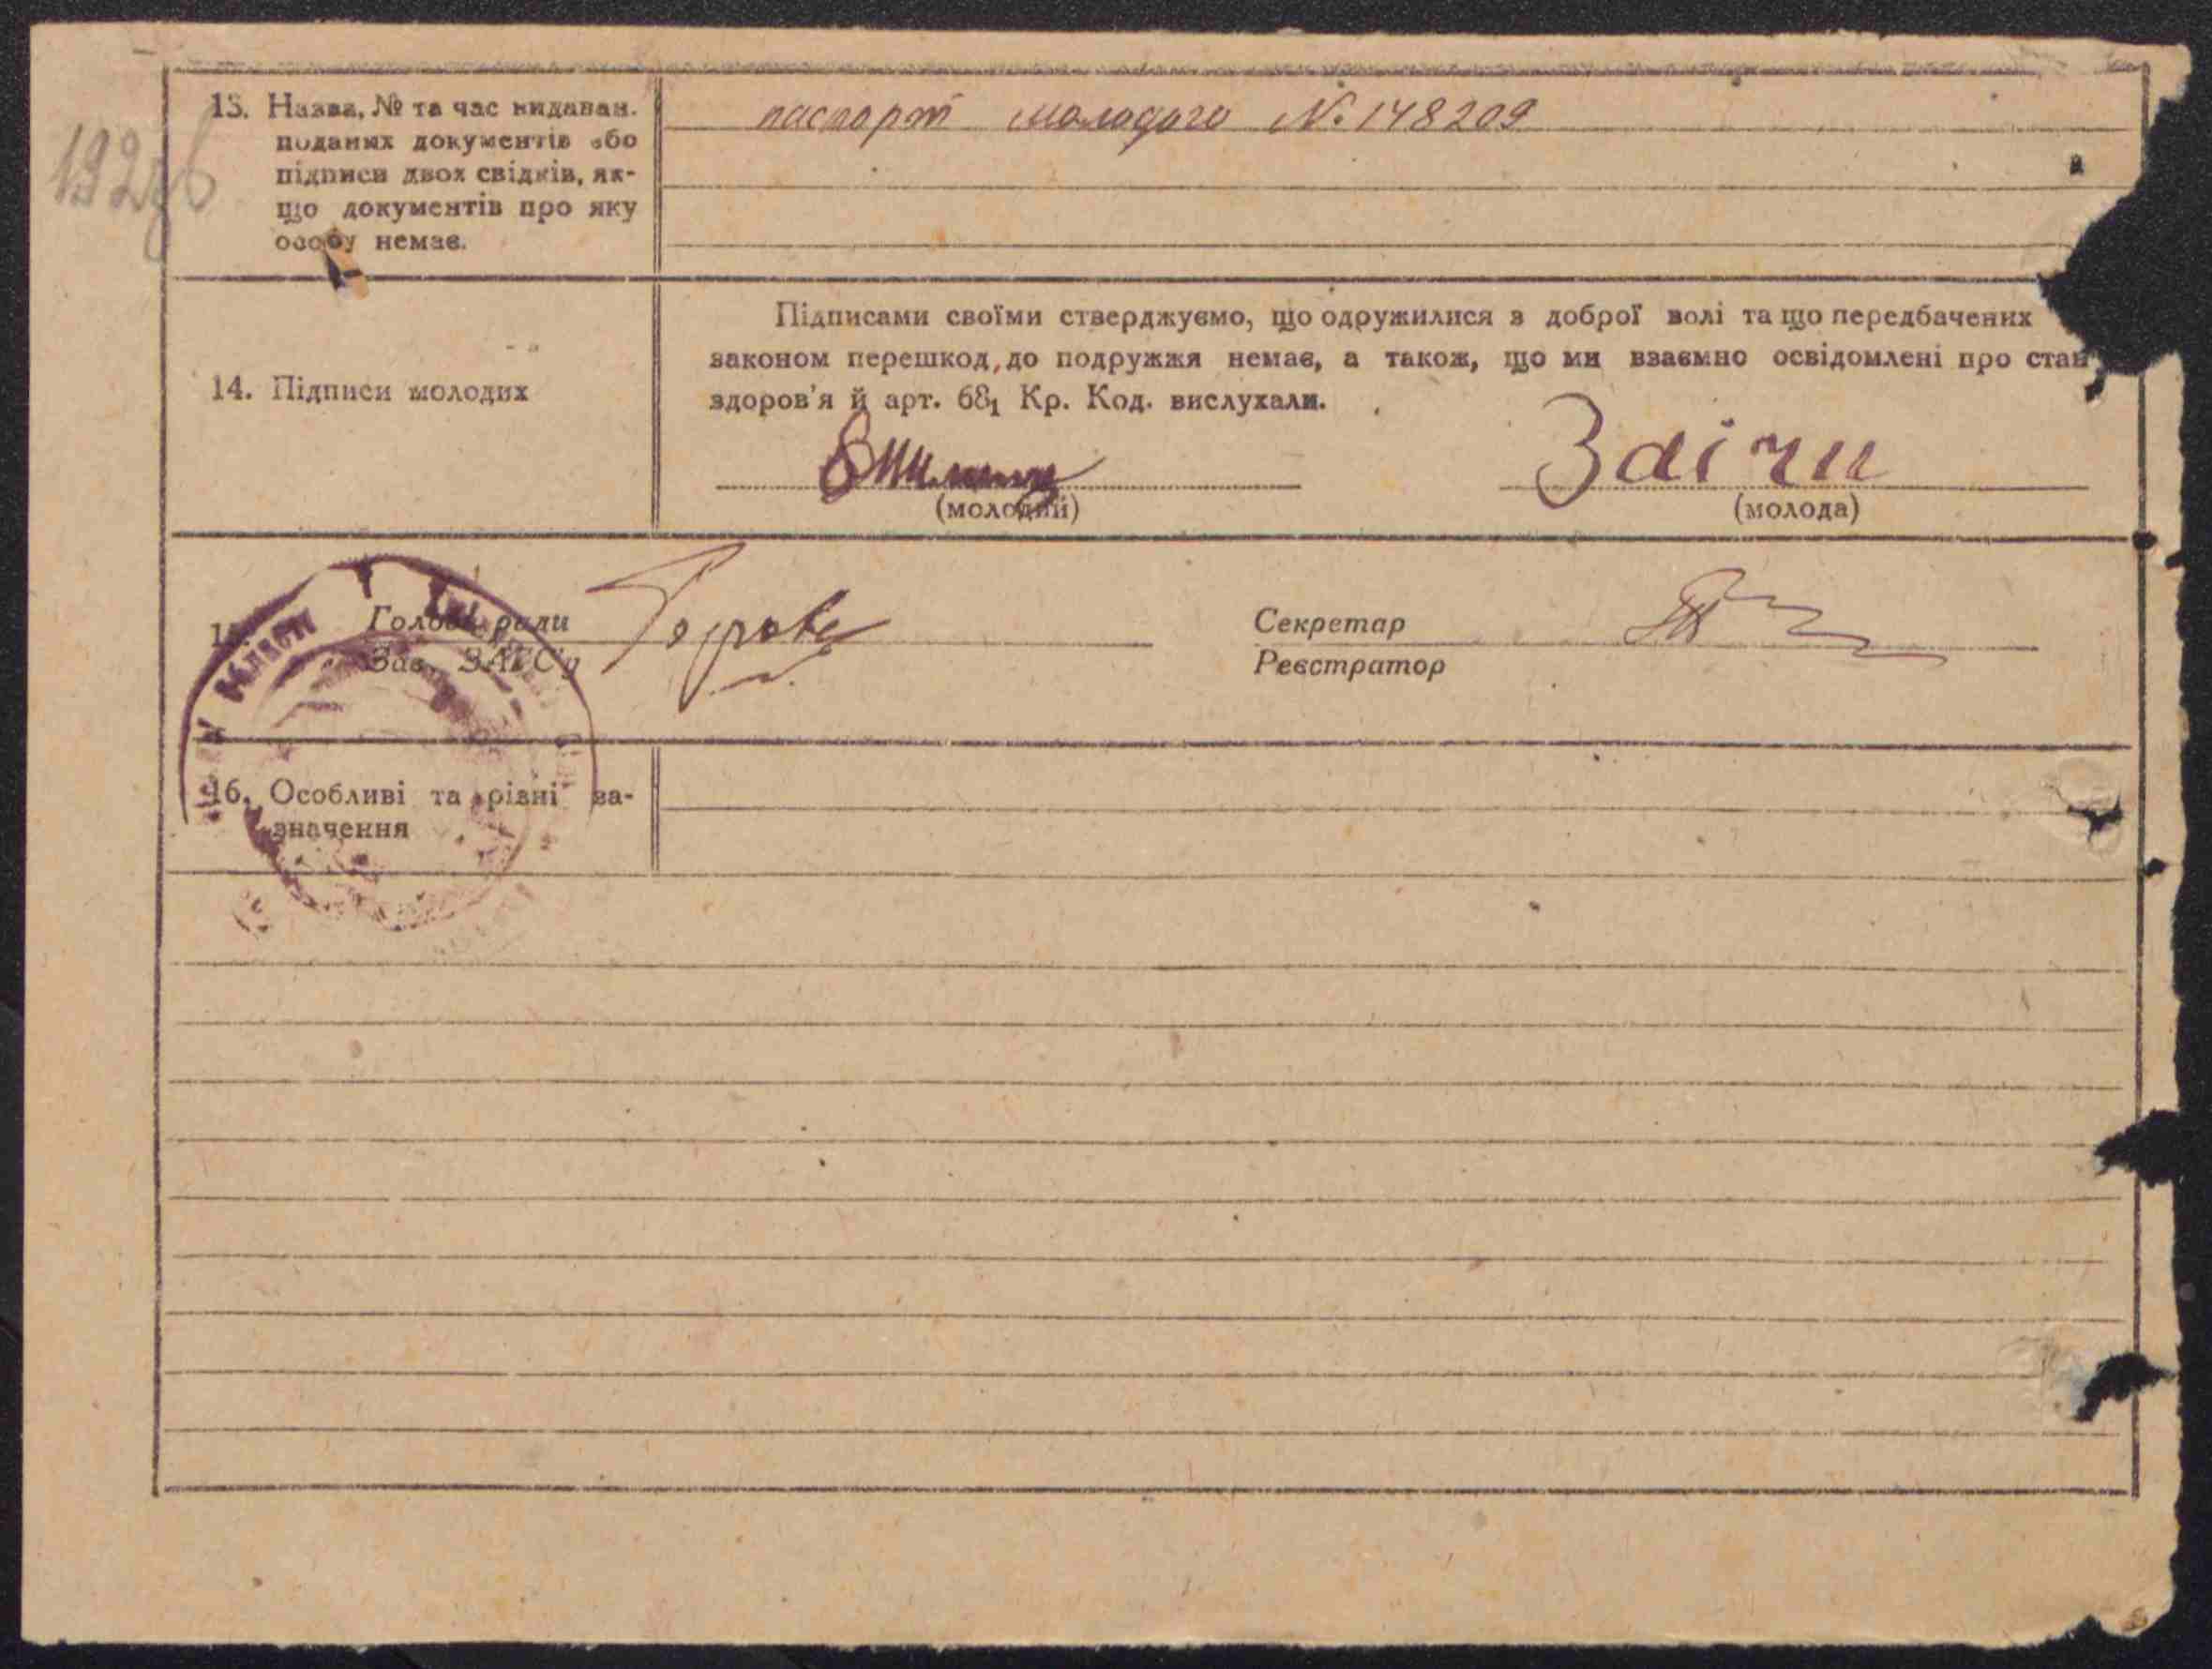 13. Назва, № та час видаван.
поданих документів або
підписи двох свідків, як-
що документів про яку
особу немає.
паспорт молодого №148209
14. Підписи молодих
Підписами своїми стверджуємо, що одружилися з доброї волі та що передбачених
законом перешкод, до подружжя немає, а також, що ми взаємно освідомлені про стан
здоров'я й арт. 68₁ Кр. Код. вислухали.
Заічи
(молодий)
(молода)
15. Голова ради
Зав. ЗАГС'у
Секретар
Реєстратор
16. Особливі та різні за-
значення